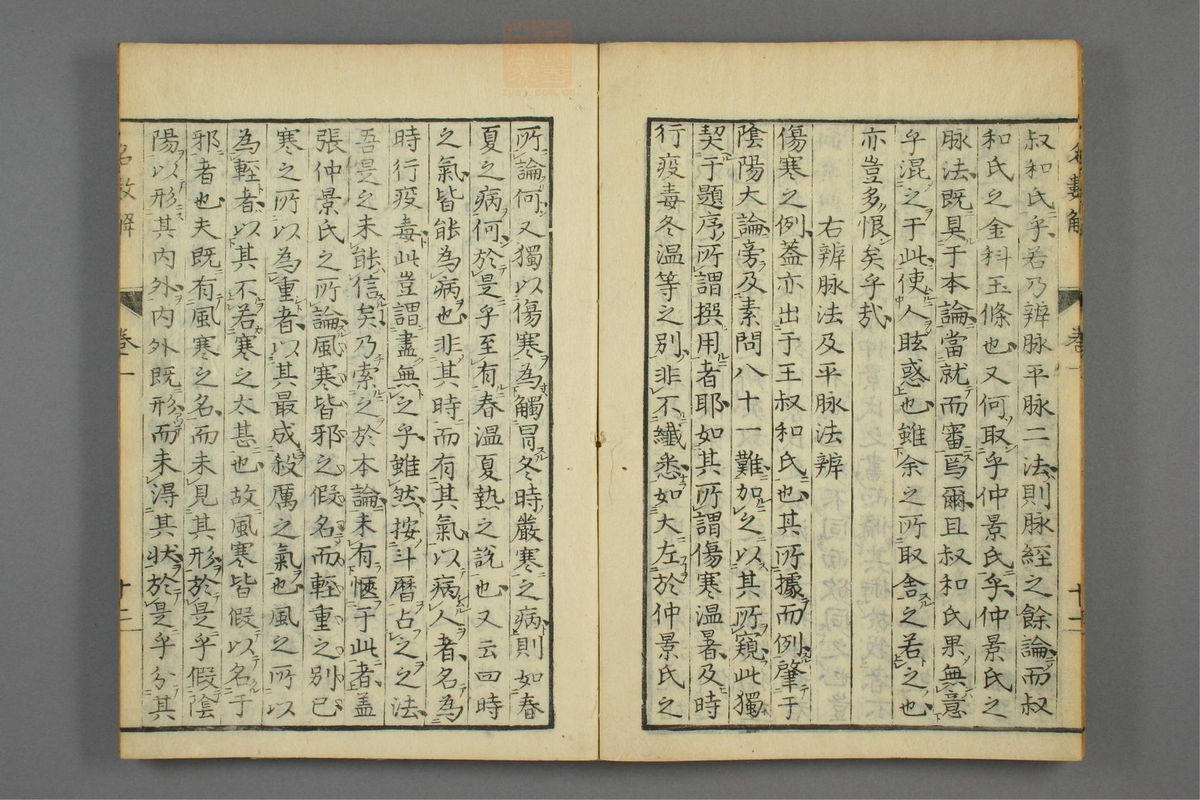 叔和氏乎若乃辨脉平脉二法則脉經之餘論而叔
和氏之金科玉條也又何取乎仲景氏乎仲景氏之
脉法既具于本論當就而審焉爾且叔和氏果無意
乎混之于此使人眩惑也雖余之所取舍之若之也
亦豈多恨矣乎哉
右辨脉法及平脉法辨
傷寒之例蓋亦出于王叔和氏也其所據而例肇于
陰陽大論旁及素問八十一難加之以其所窺此獨
契于題序所謂撰用者耶如其所謂傷寒温暑及時
行疫毒冬温等之別非不纖悉如大左於仲景氏之
名數解
卷一
十二
所論何又獨以傷寒為觸冒冬時嚴寒之病則如春
夏之病何於是乎至有春温夏熱之說也又云四時
之氣皆能為病也非其時而有其氣以病人者名為
時行疫毒此豈謂盡無之乎雖然按斗暦占之之法
吾畏之未能信矣乃索之於本論未有愜于此者蓋
張仲景氏之所論風寒皆邪之假名而輕重之別已
寒之所以為重者以其最成殺厲之氣也風之所以
為輕者以其不若寒之太甚也故風寒皆假以名于
邪者也夫既有風寒之名而未見其形於是乎假陰
陽以形其内外内外既形而未淂其状於是乎分其